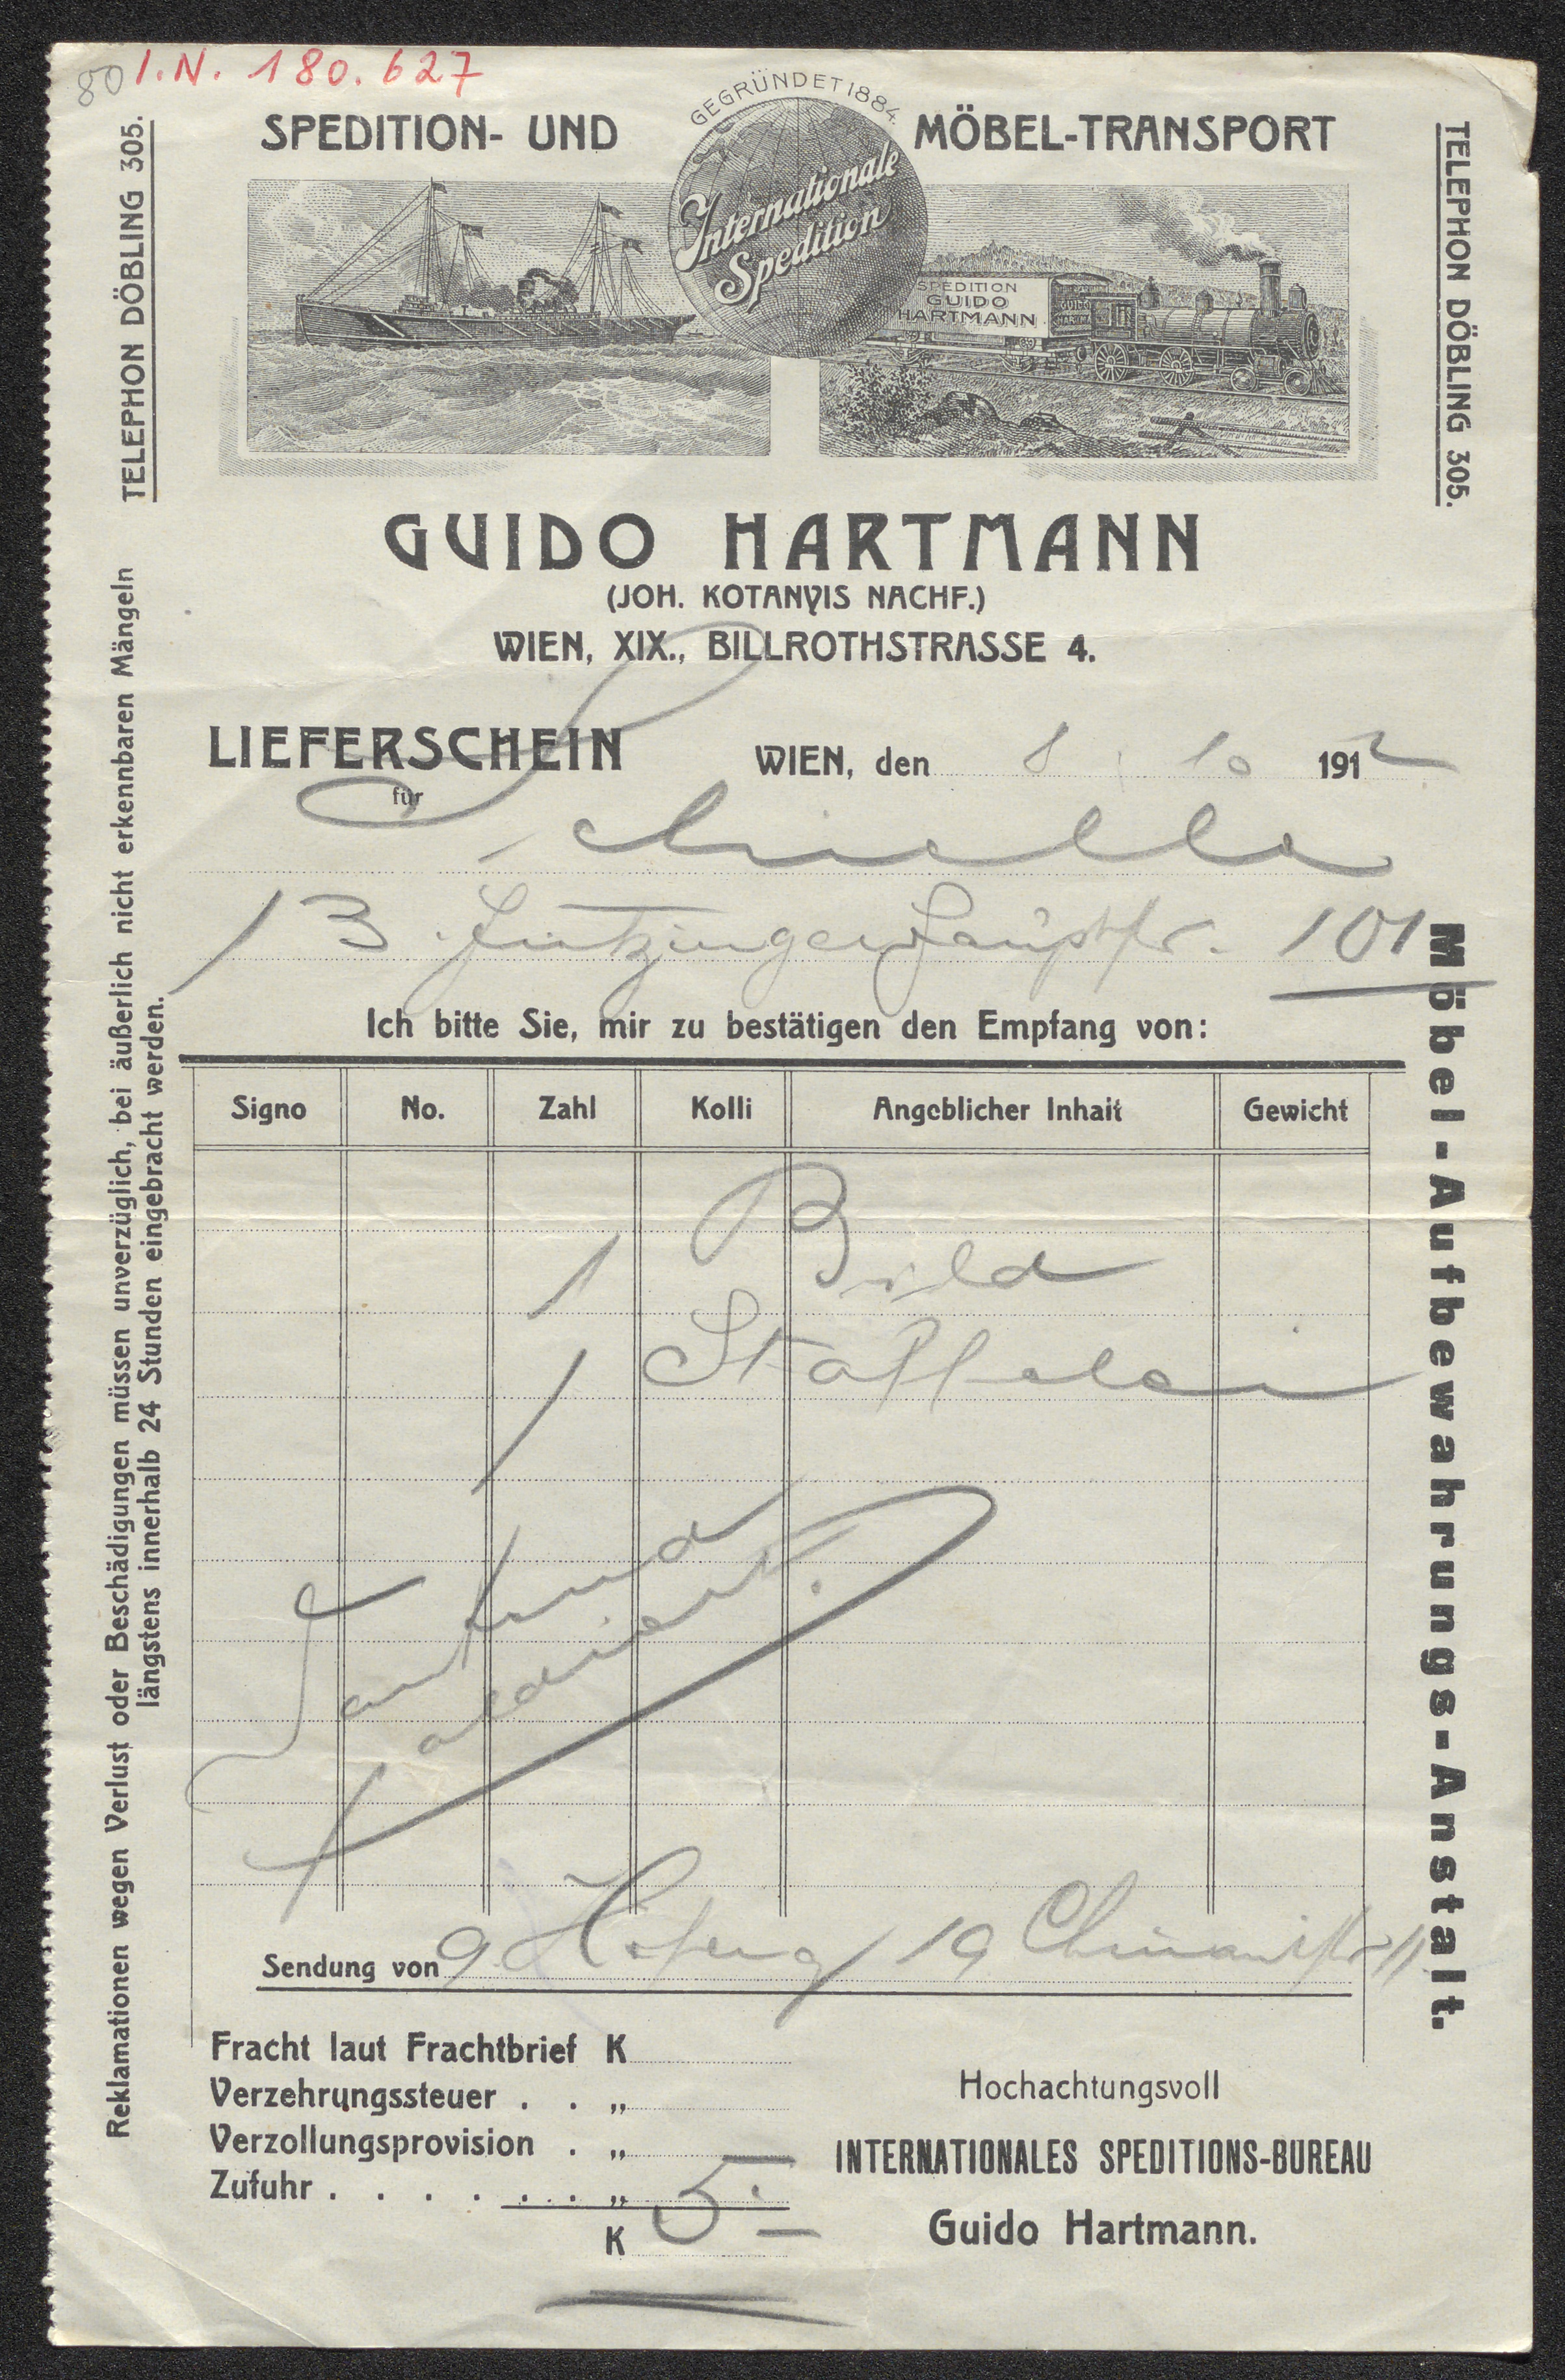 80 I.N. 180.627
GEGRÜNDET 1884.
SPEDITION- UND MÖBEL-TRANSPORT
Internationale
Spedition
SPEDITION
GUIDO
HARTMANN
TELEPHON DÖBLING 305.
TELEPHON DÖBLING 305.
GUIDO HARTMANN
(JOH. KOTANYIS NACHF.)
WIEN, XIX., BILLROTHSTRASSE 4.
LIEFERSCHEIN WIEN, den 8 10 1912
für
Schiele
13. Hietzinger Hauptstr. 101
Ich bitte Sie, mir zu bestätigen den Empfang von:
Signo No. Zahl Kolli Angeblicher Inhalt Gewicht
1 Bild
1 Staffelei
Dankend
Sendung von 19
Fracht laut Frachtbrief K
Verzehrungssteuer . . „
Verzollungsprovision . „
Zufuhr . . . . . . . „
K 5.–
Hochachtungsvoll
INTERNATIONALES SPEDITIONS-BUREAU
Guido Hartmann.
Reklamationen wegen Verlust oder Beschädigungen müssen unverzüglich, bei äußerlich nicht erkennbaren Mängeln
längstens innerhalb 24 Stunden eingebracht werden.
Möbel-Aufbewahrungs-Anstalt.